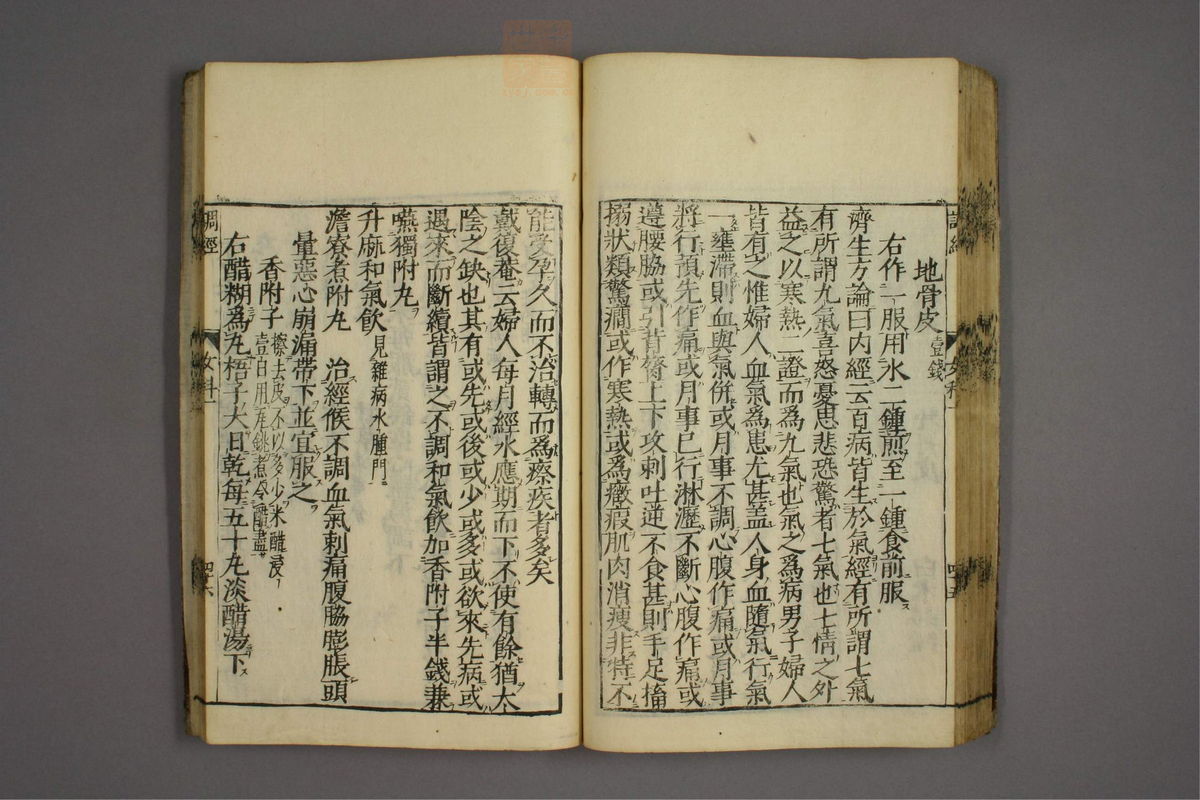 地骨皮 壹錢
右作一服用水二鍾煎至一鍾食前服
濟生方論曰內經云百病皆生於氣經有所謂七氣
有所謂九氣喜怒憂思悲恐驚者七氣也七情之外
益之以寒熱二證而爲九氣也氣之爲病男子婦人
皆有之惟婦人血氣爲患尤甚蓋人身血隨氣行氣
一壅滯則血與氣併或月事不調心腹作痛或月事
將行預先作痛或月事已行淋瀝不斷心腹作痛或
遶腰脇或引背膂上下攻刺吐逆不食甚則手足搐
搦狀類驚癇或作寒熱或爲癥瘕肌肉消瘦非特不
能受孕久而不治轉而爲瘵疾者多矣
戴復菴云婦人每月經水應期而下不使有餘猶太
陰之缺也其有或先或後或少或多或欲來先病或
遇來而斷續皆謂之不調和氣飲加香附子半錢兼
嚥獨附丸
升麻和氣飲 見雜病水腫門
澹寮煮附丸 治經候不調血氣刺痛腹脇膨脹頭
暈惡心崩漏帶下並宜服之
香附子 擦去皮不以多少米醋浸
壹日用瓦銚煮令醋盡
右醋糊爲丸梧子大日乾每五十丸淡醋湯下
調經
女科一
四十六